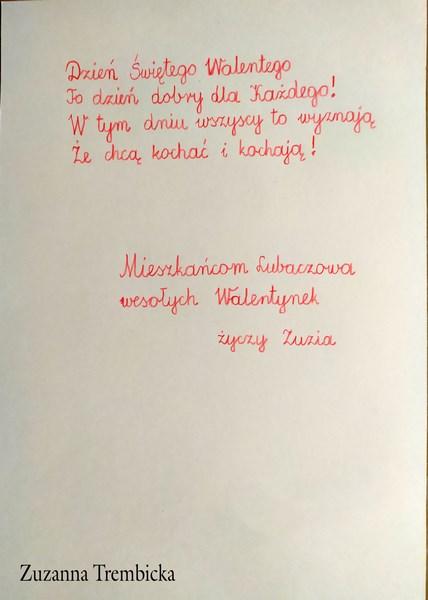 Dzień Świętego Walentego
To dzień dobry dla Każdego!
W tym dniu wszyscy to wyznają
Że chcą kochać i kochają!
Mieszkańcom Lubaczowa
wesołych Walentynek
życzy Zuzia
Zuzanna Trembicka